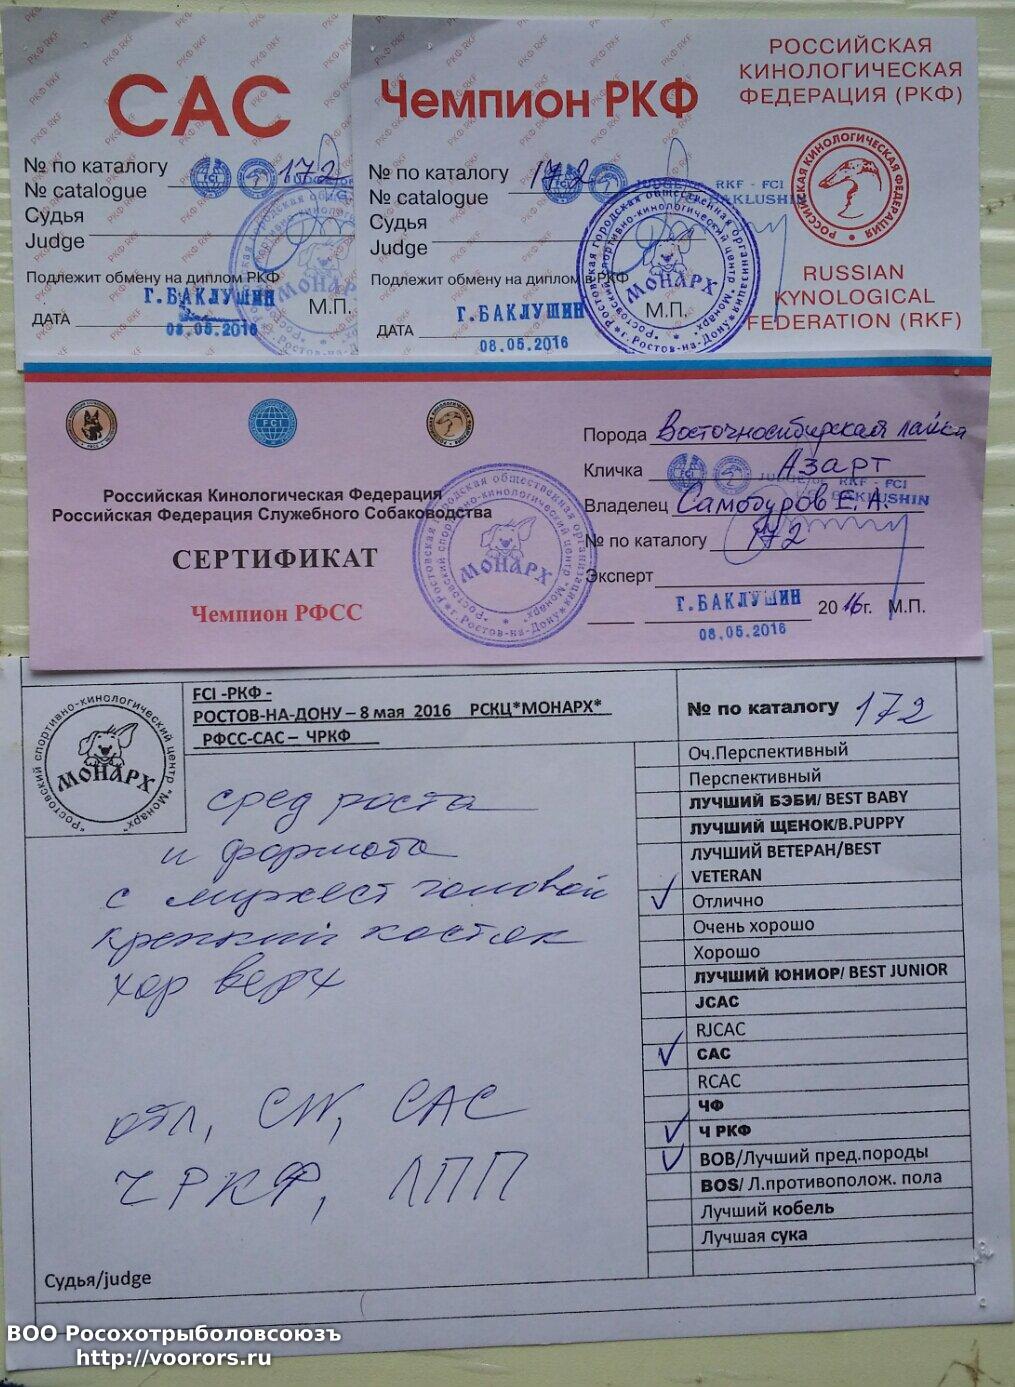 САС
№ по каталогу 172
№ catalogue
Судья
Judge
Подлежит обмену на диплом РКФ
Г.БАКЛУШИН
ДАТА 08.05.2016 М.П.
Чемпион РКФ
№ по каталогу 172
№ catalogue
Судья
Judge
JUDGE RKF - FCI
BAKLUSHIN
Подлежит обмену на диплом РКФ
Г.БАКЛУШИН М.П.
ДАТА 08.05.2016
МОНАРХ
РОССИЙСКАЯ
КИНОЛОГИЧЕСКАЯ
ФЕДЕРАЦИЯ (РКФ)
РОССИЙСКАЯ КИНОЛОГИЧЕСКАЯ ФЕДЕРАЦИЯ
RUSSIAN
KYNOLOGICAL
FEDERATION (RKF)
FCI
Российская Кинологическая Федерация
Российская Федерация Служебного Собаководства
СЕРТИФИКАТ
Чемпион РФСС
МОНАРХ
Порода Восточносибирская лайка
Кличка Азарт
Владелец Самбуров Е.А.
№ по каталогу 172
Эксперт
Г.БАКЛУШИН 2016г. М.П.
08.05.2016
Ростовский спортивно-кинологический центр "Монарх"
МОНАРХ
FCI -РКФ -
РОСТОВ-НА-ДОНУ – 8 мая 2016 РСКЦ*МОНАРХ*
РФСС-САС – ЧРКФ
№ по каталогу 172
сред роста
и формата
с мужест головой
крепкий костяк
хор верх
отл, CW, САС
ЧРКФ, ЛПП
Оч.Перспективный
Перспективный
ЛУЧШИЙ БЭБИ/ BEST BABY
ЛУЧШИЙ ЩЕНОК/B.PUPPY
ЛУЧШИЙ ВЕТЕРАН/BEST
VETERAN
✓ Отлично
Очень хорошо
Хорошо
ЛУЧШИЙ ЮНИОР/ BEST JUNIOR
JCAC
RJCAC
✓ САС
RCAC
ЧФ
✓ Ч РКФ
✓ BOB/Лучший пред.породы
BOS/ Л.противополож. пола
Лучший кобель
Лучшая сука
Судья/judge
ВОО Росохотрыболовсоюзъ
http://voorors.ru